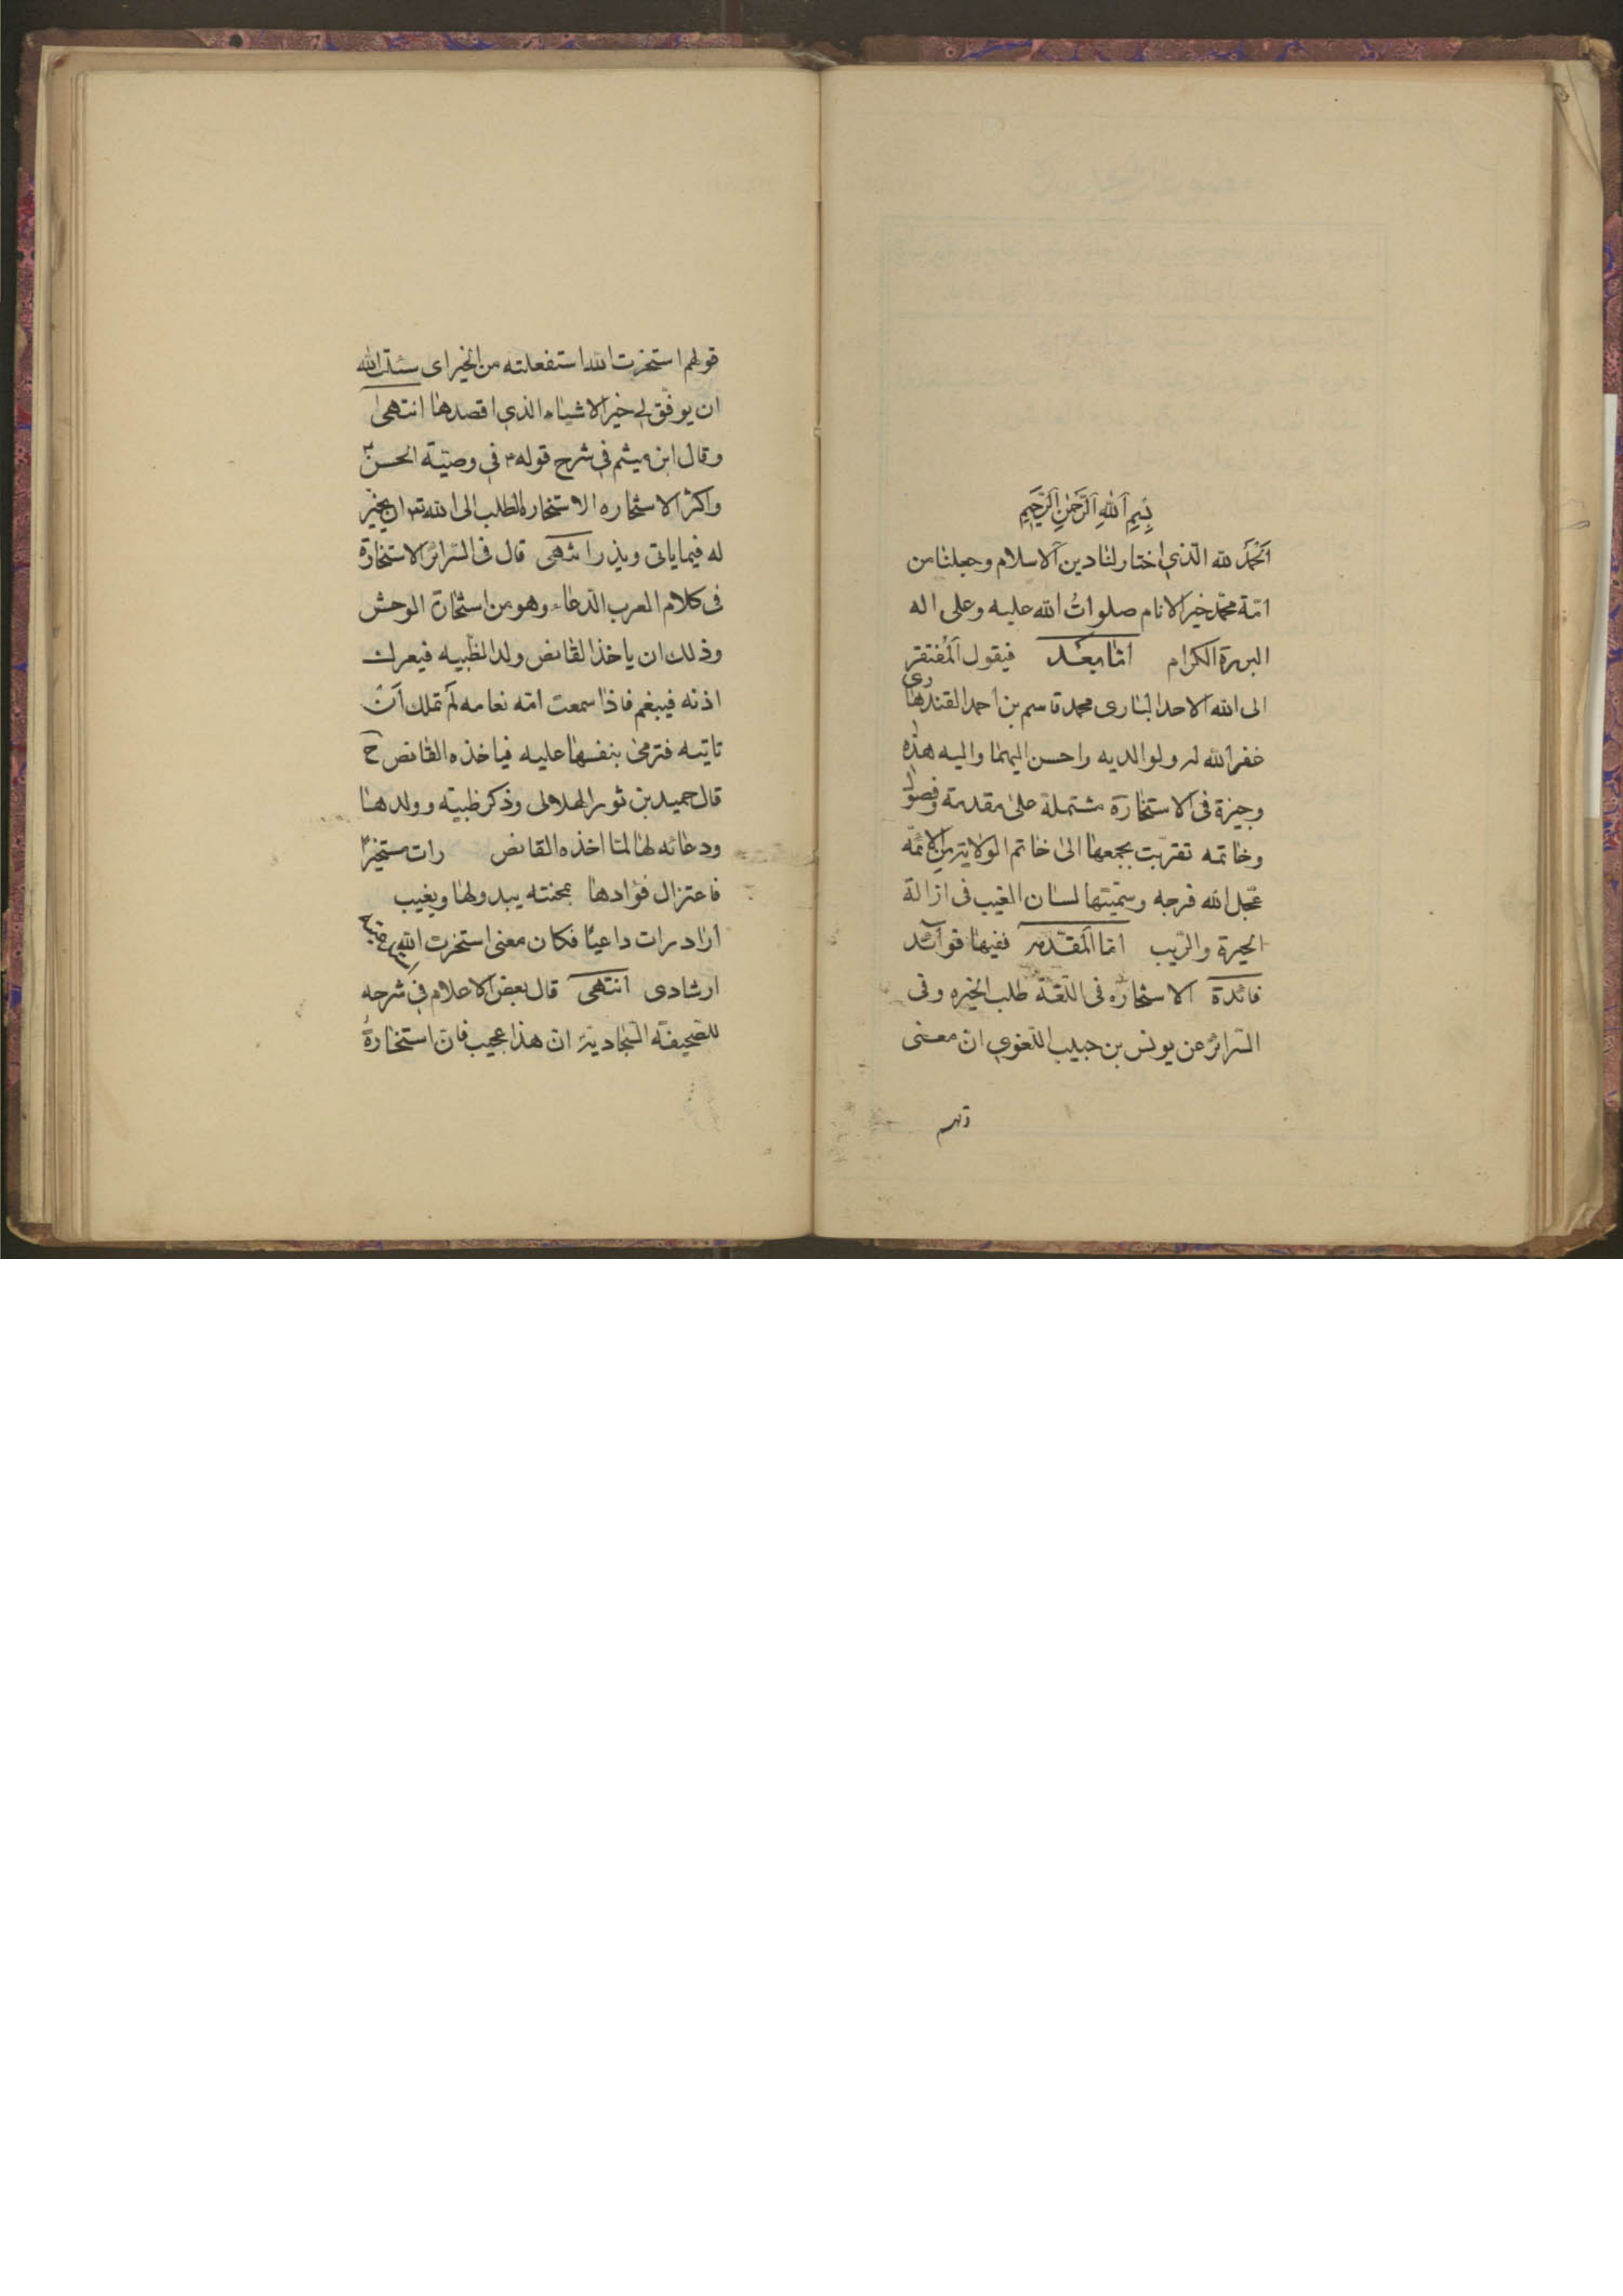 بِسْمِ اَللهِ اَلرَّحْمٰنِ اَلرَّحِيمِ
اَلحَمْدُ لله الّذي اختار لنا دين الاسلام وجعلنا من
امّة محمّد خير الانام صلواتُ الله عليه وعلى اله
البررة الكرام امّا بعد فيقول اَلمُفتقر
الى الله الاحد الباري محمد قاسم بن احمد القندهارى
غفر الله له ولوالديه واحسن اليهما واليه هذه
وجيزة فى الاستخارة مشتملة على مقدمة وفصول
وخاتمه تقرّبت بجمعها الى خاتم الولاية من الائمّة
عجّل الله فرجه وسمّيتها لسان الغيب فى ازالة
الحيرة والرّيب امّا المقدّمه ففيها فوآئد
فائدة الاستخاره فى اللّغة طلب الخيره وفى
السّرائر عن يونس بن حبيب اللّغوي ان معنى
قولهم
قولهم استخرت الله استفعلته من الخير اى سئلت الله
ان يوفّق لي خير الاشياء الذي اقصدها انتهى
وقال ابن ميثم في شرح قوله ع في وصيّة الحسن ع
واكثر الاستخاره الاستخارة الطلب الى الله تع ان يخير
له فيما ياتى ويذر انتهى قال فى السّرائر الاستخارة
فى كلام العرب الدّعاء وهو من استخارة الوحش
وذلك ان ياخذ القانص ولد الظّبيه فيعرك
اذنه فيبغم فاذا سمعت امّه نغامه لم تملك اَن
تاتيه فترمى بنفسها عليه فياخذه القانص ح
قال حميد بن ثور الهلالى وذكر ظبيّه وولدها
ودعائه لها لمّا اخذه القانص رات مستخيرا
فاعتزال فؤادها بمحنته يبدولها ويغيب
اراد رات داعيًا فكان معنى استخرت الله استدعيته
ارشادى انتهى قال بعض الاعلام في شرحه
للصّحيفة السّجاديّة ان هذا عجيب فان استخارة